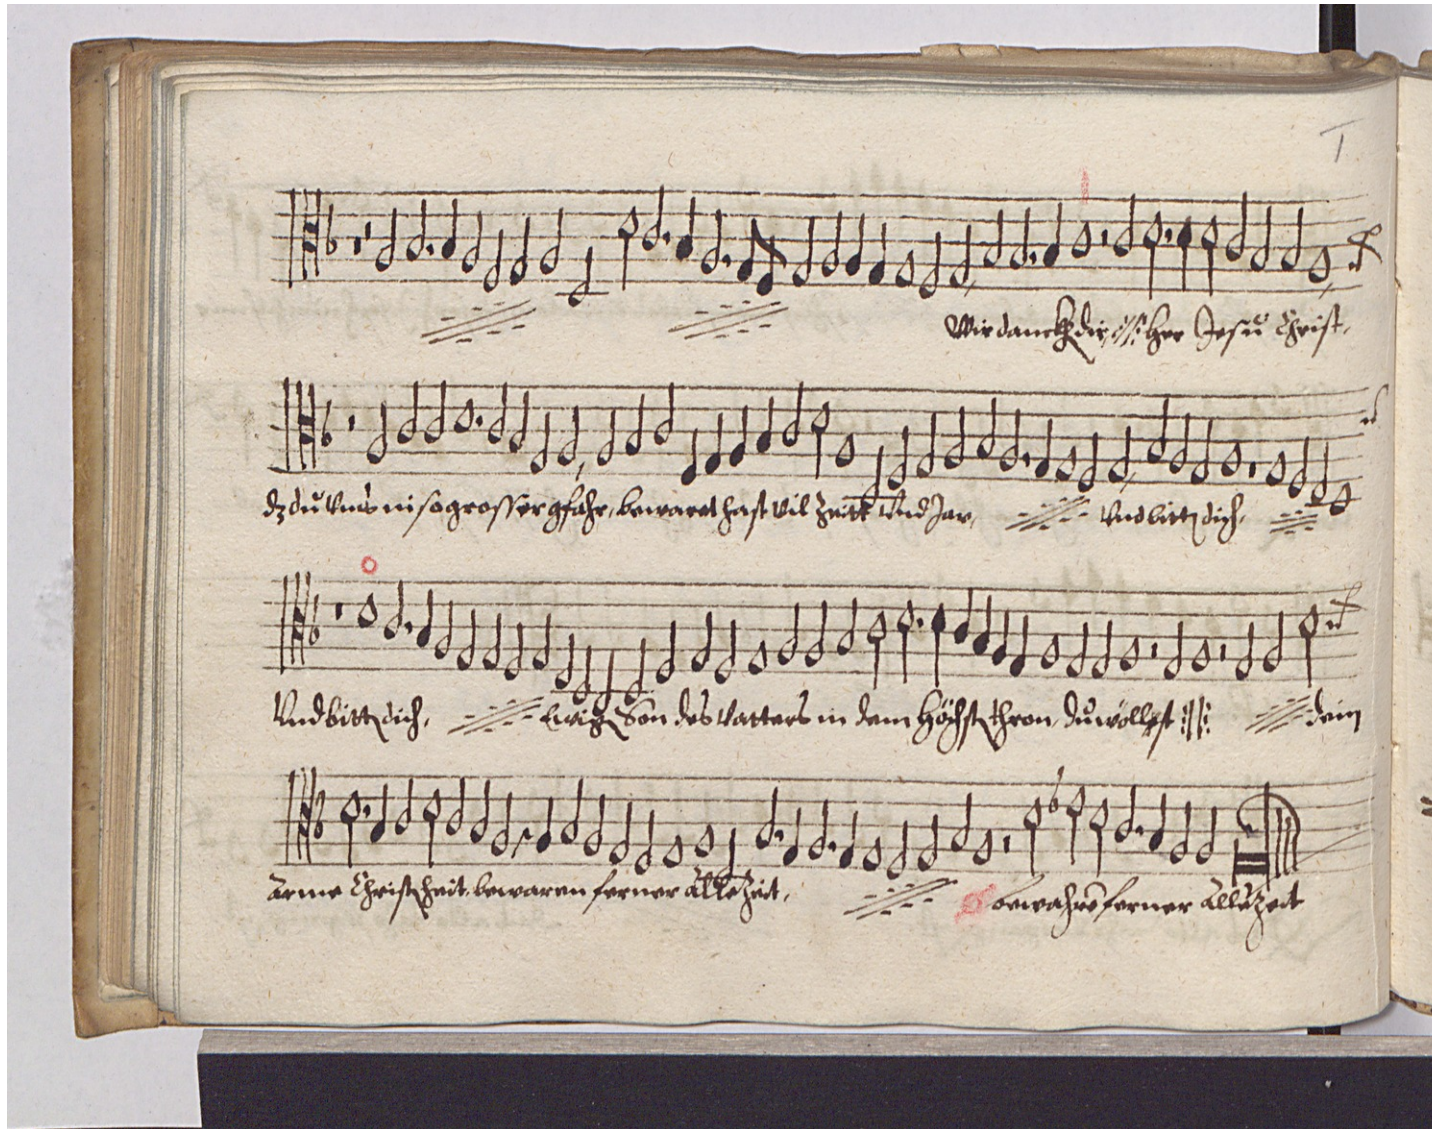 I
Wir danckē dir, :||: Her Jesu Christ,
dz du vns in so grosser gfahr, bewaret hast vil Zeitt vnd Jar, vnd bittē dich,
Vnd bittē dich, Ewigē Son des Vatters in dem Höchstē thron, du wöllest :||: dein
Arme Christēheit, bewaren ferner alle Zeit, bewahrē ferner alle Zeit